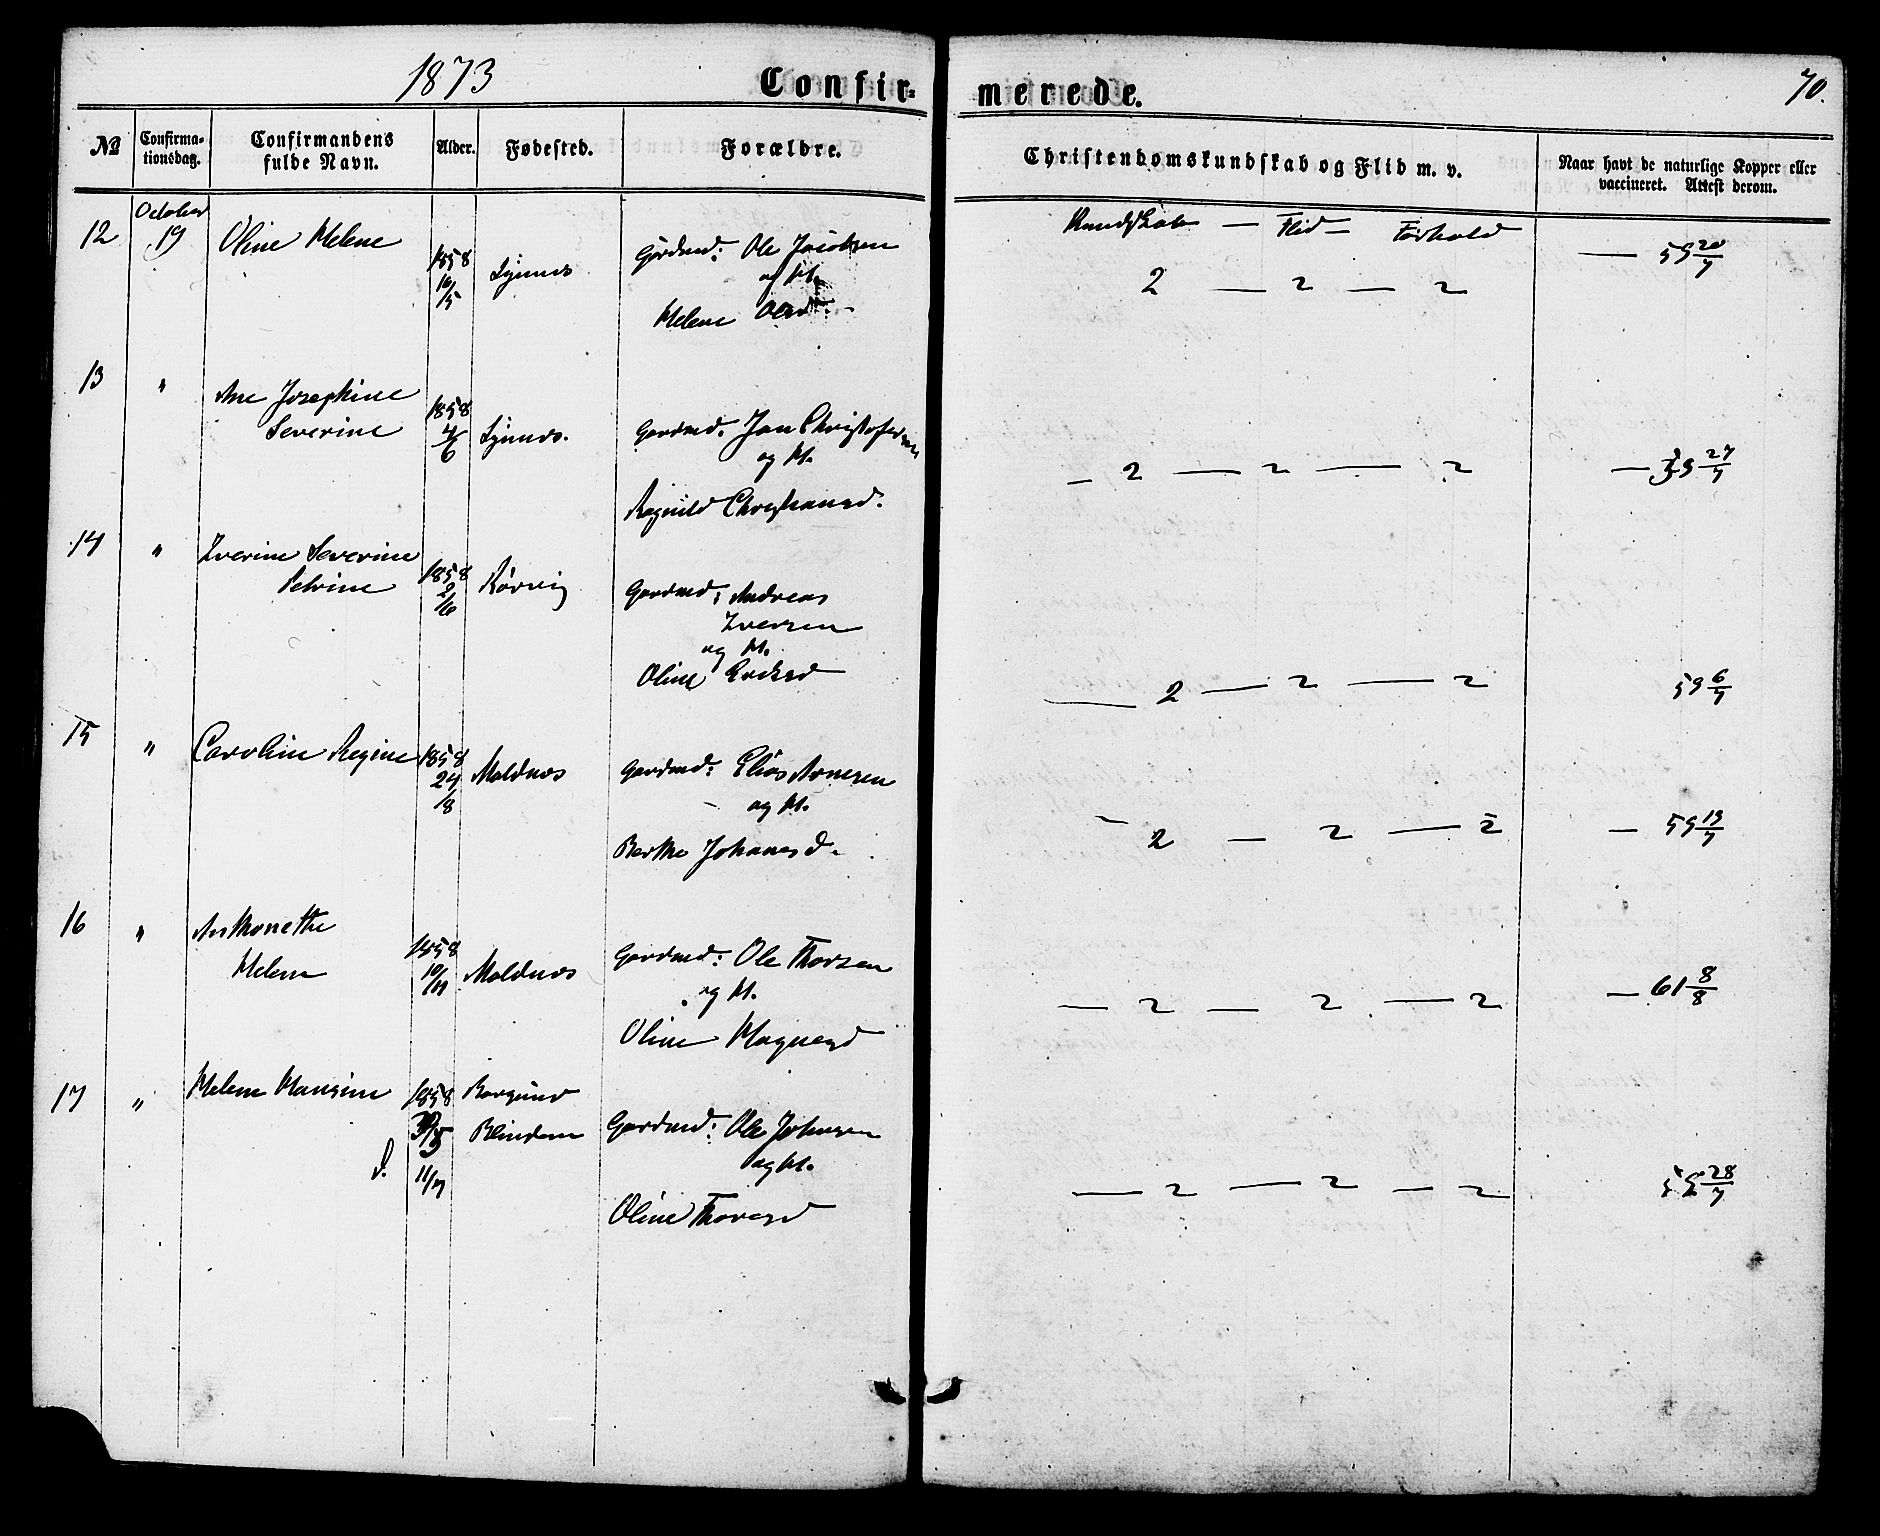 1873
Confir- merede.
70.
No
Confirma-
tionsdag.
Confirmandens
fulde Navn.
Alder.
Fødested.
Forældre.
Christendomskundskab og Flid m. v.
Naar havt de naturlige Kopper eller
vaccineret. Attest derom.
Kundskab — Flid — Forhold
12 October 19 Oline Helene 1858 16/5 Synnes Gårdmd: Ole Jacobsen
og H.
Helene Olsd.
2 — 2 — 2 — 59 20/7
13 " Ane Josephine
Severine 1858 4/6 Synnes. Gaardmd. Jon Christofersen
og H.
Ragnild Christiansd.
— 2 — 2 — 2 — 59 27/7
14 " Iverine Severine
Petrine 1858 2/6 Rørvig Gaardmd: Andreas
Iversen
og H.
Oline
— 2 — 2 — 2 59 6/7
15 " Caroline Regine 1858 24/8 Moldnæs Gaardmd: Elias Arnesen
og H.
Berthe Johansd.
2 — 2 — 2 — 59 13/7
16 " Anthonette
Helene 1858 10/11 Moldnæs Gaardmd: Ole Thorsen
og H.
Oline Magnesd
— 2 — 2 — 2 — 61 8/8
17 " Helene Hansine 1858 Borgund
Blindem Gaardmd: Ole Johnsen
og H.
d. 11/7
Oline Thoresd
— 2 — 2 — 2 28/7